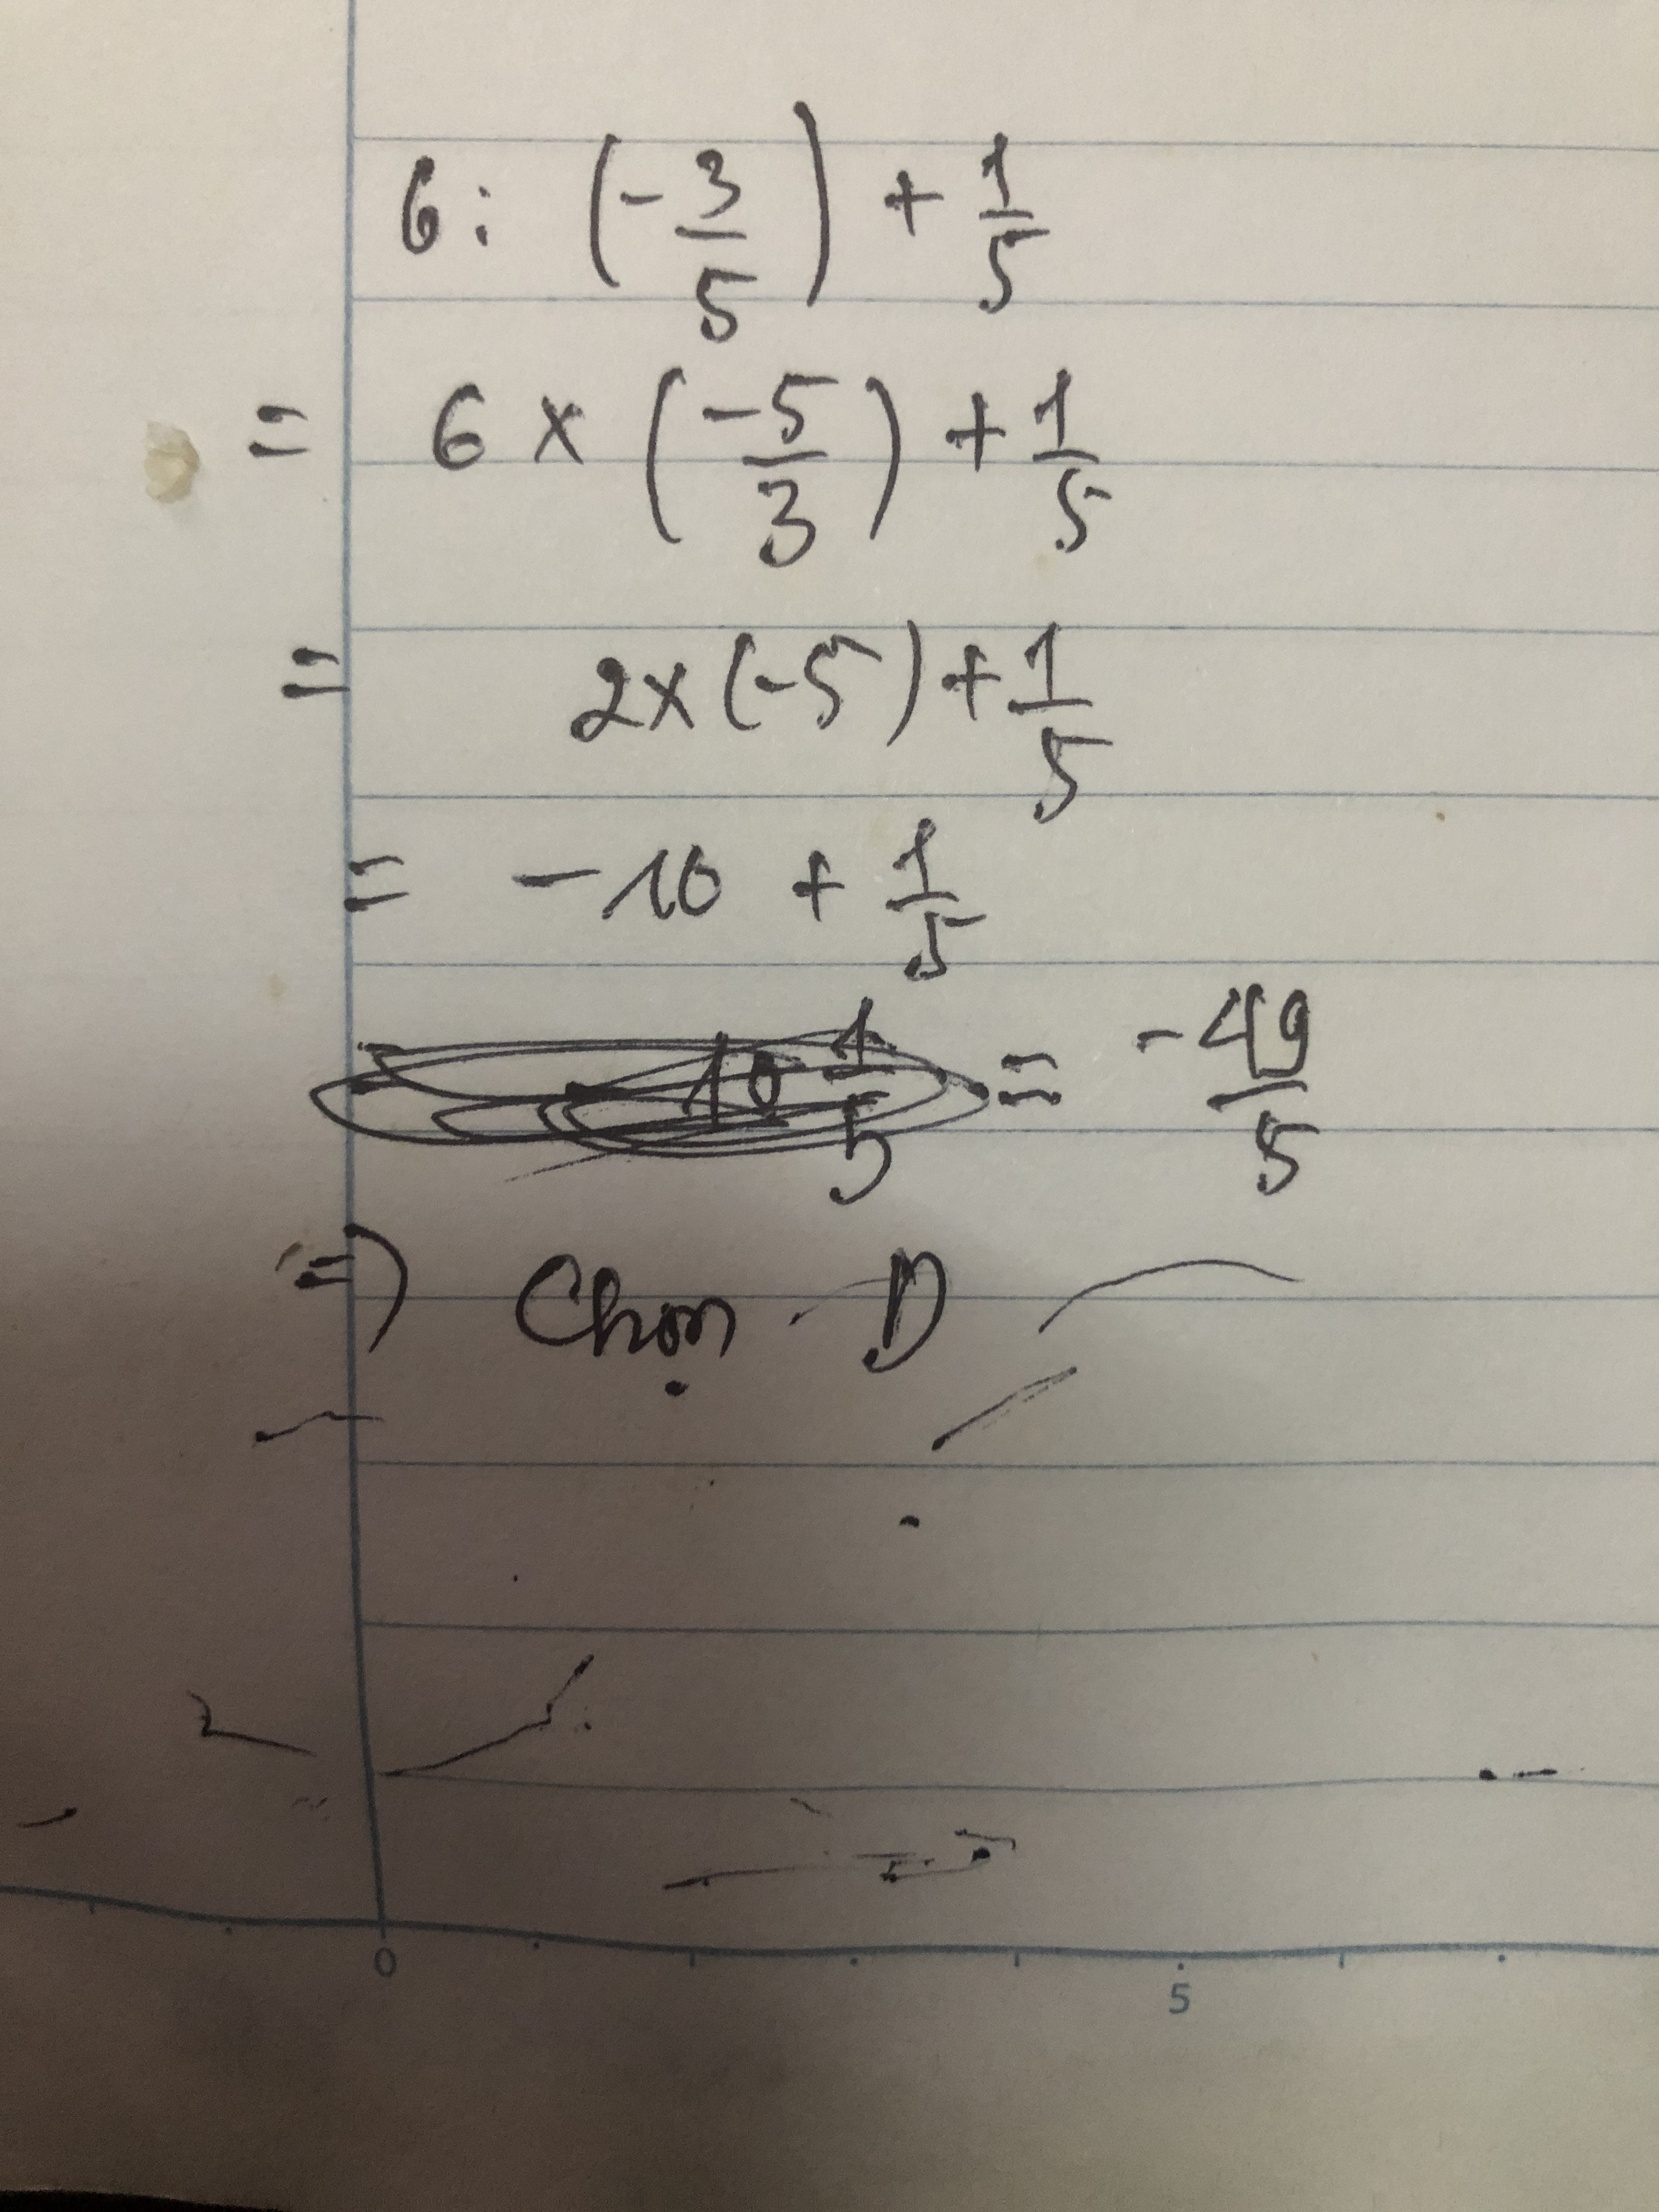 6 : (-3/5) + 1/5
= 6 x (-5/3) + 1/5
= 2 x (-5) + 1/5
= -10 + 1/5
10 1/5 = -49/5
=> Chọn D
0 5